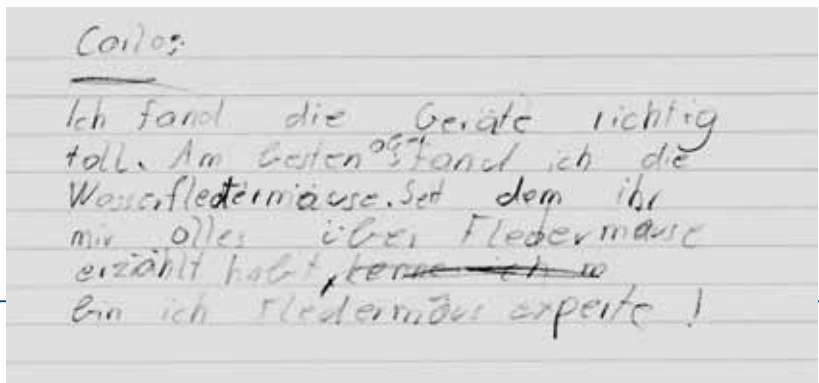 Carlos:
Ich fand die Geräte richtig
toll. Am besten fand ich die
Wasserfledermäuse. Seit dem ihr
mir alles über Fledermäuse
erzählt habt,
bin ich Fledermaus experte!